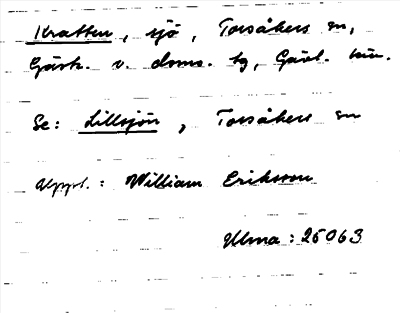 Kratten, sjö, Torsåkers sn,
Gästr. v. doms. tg, Gävl. län.
Se: Lillsjön, Torsåkers sn
Uppt.: William Eriksson
Ulma: 25063